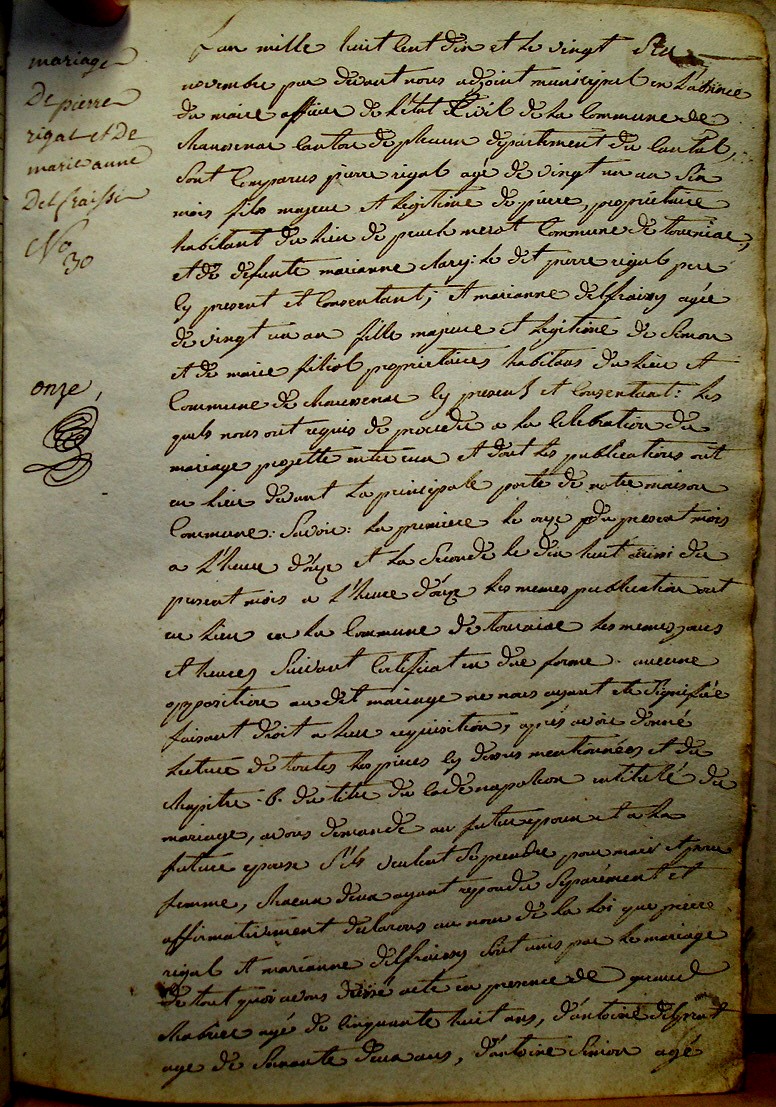 mariage
De pierre
rigal et De
marie anne
Delfraissi
No
30
onze,
L'an mille huit cent dix et le vingt six
novembre par devant nous adjoint municipal en l'absence
du maire officier de l'état Civil de la Commune de
Maussenac Canton de pleaux département du Cantal,
sont Comparus pierre rigal agé de vingt un an six
mois fils majeur et legitime de pierre, propriétaire
habitant du lieu de puech merot Commune de tourniac,
et de defunte marianne Clary: le dit pierre rigal pere
Cy present et Consentant; et marianne delfraissy agée
de vingt un an fille majeure et legitime de Simon
et de marie filiol propriétaires habitans du lieu et
Commune de Chaussenac Cy present et Consentant: les
quels nous ont requis de proceder a la Celebration du
mariage projetté entre eux et dont les publications ont
eu lieu devant la principale porte de notre maison
Commune: Savoir: la premiere le onze du present mois
a l'heure d'onze et la Seconde le dix huit aussi du
present mois a l'heure d'onze les memes publication ont
eu lieu en la Commune de tourniac les memes jours
et heures Suivant Certificat en due forme. aucune
opposition au dit mariage ne nous ayant eté Signifiée
faisant droit a leur requisition, après avoir donné
lecture de toutes les pieces cy dessus mentionnées et du
Chapitre .6. du titre du Code napoleon intitulé du
mariage, avons demandé au futur epoux et a la
future epouse S'ils veulent Se prendre pour mari et pour
femme, Chacun d'eux ayant repondu Separément et
affirmativement declarons au nom de la loi que pierre
rigal et marianne delfraissy Sont unis par le mariage
de tout quoi avons dressé acte en presence de geraud
Chabrier agé de Cinquante huit ans, d'antoine
age de Soixante deux ans, d'antoine Simon agé